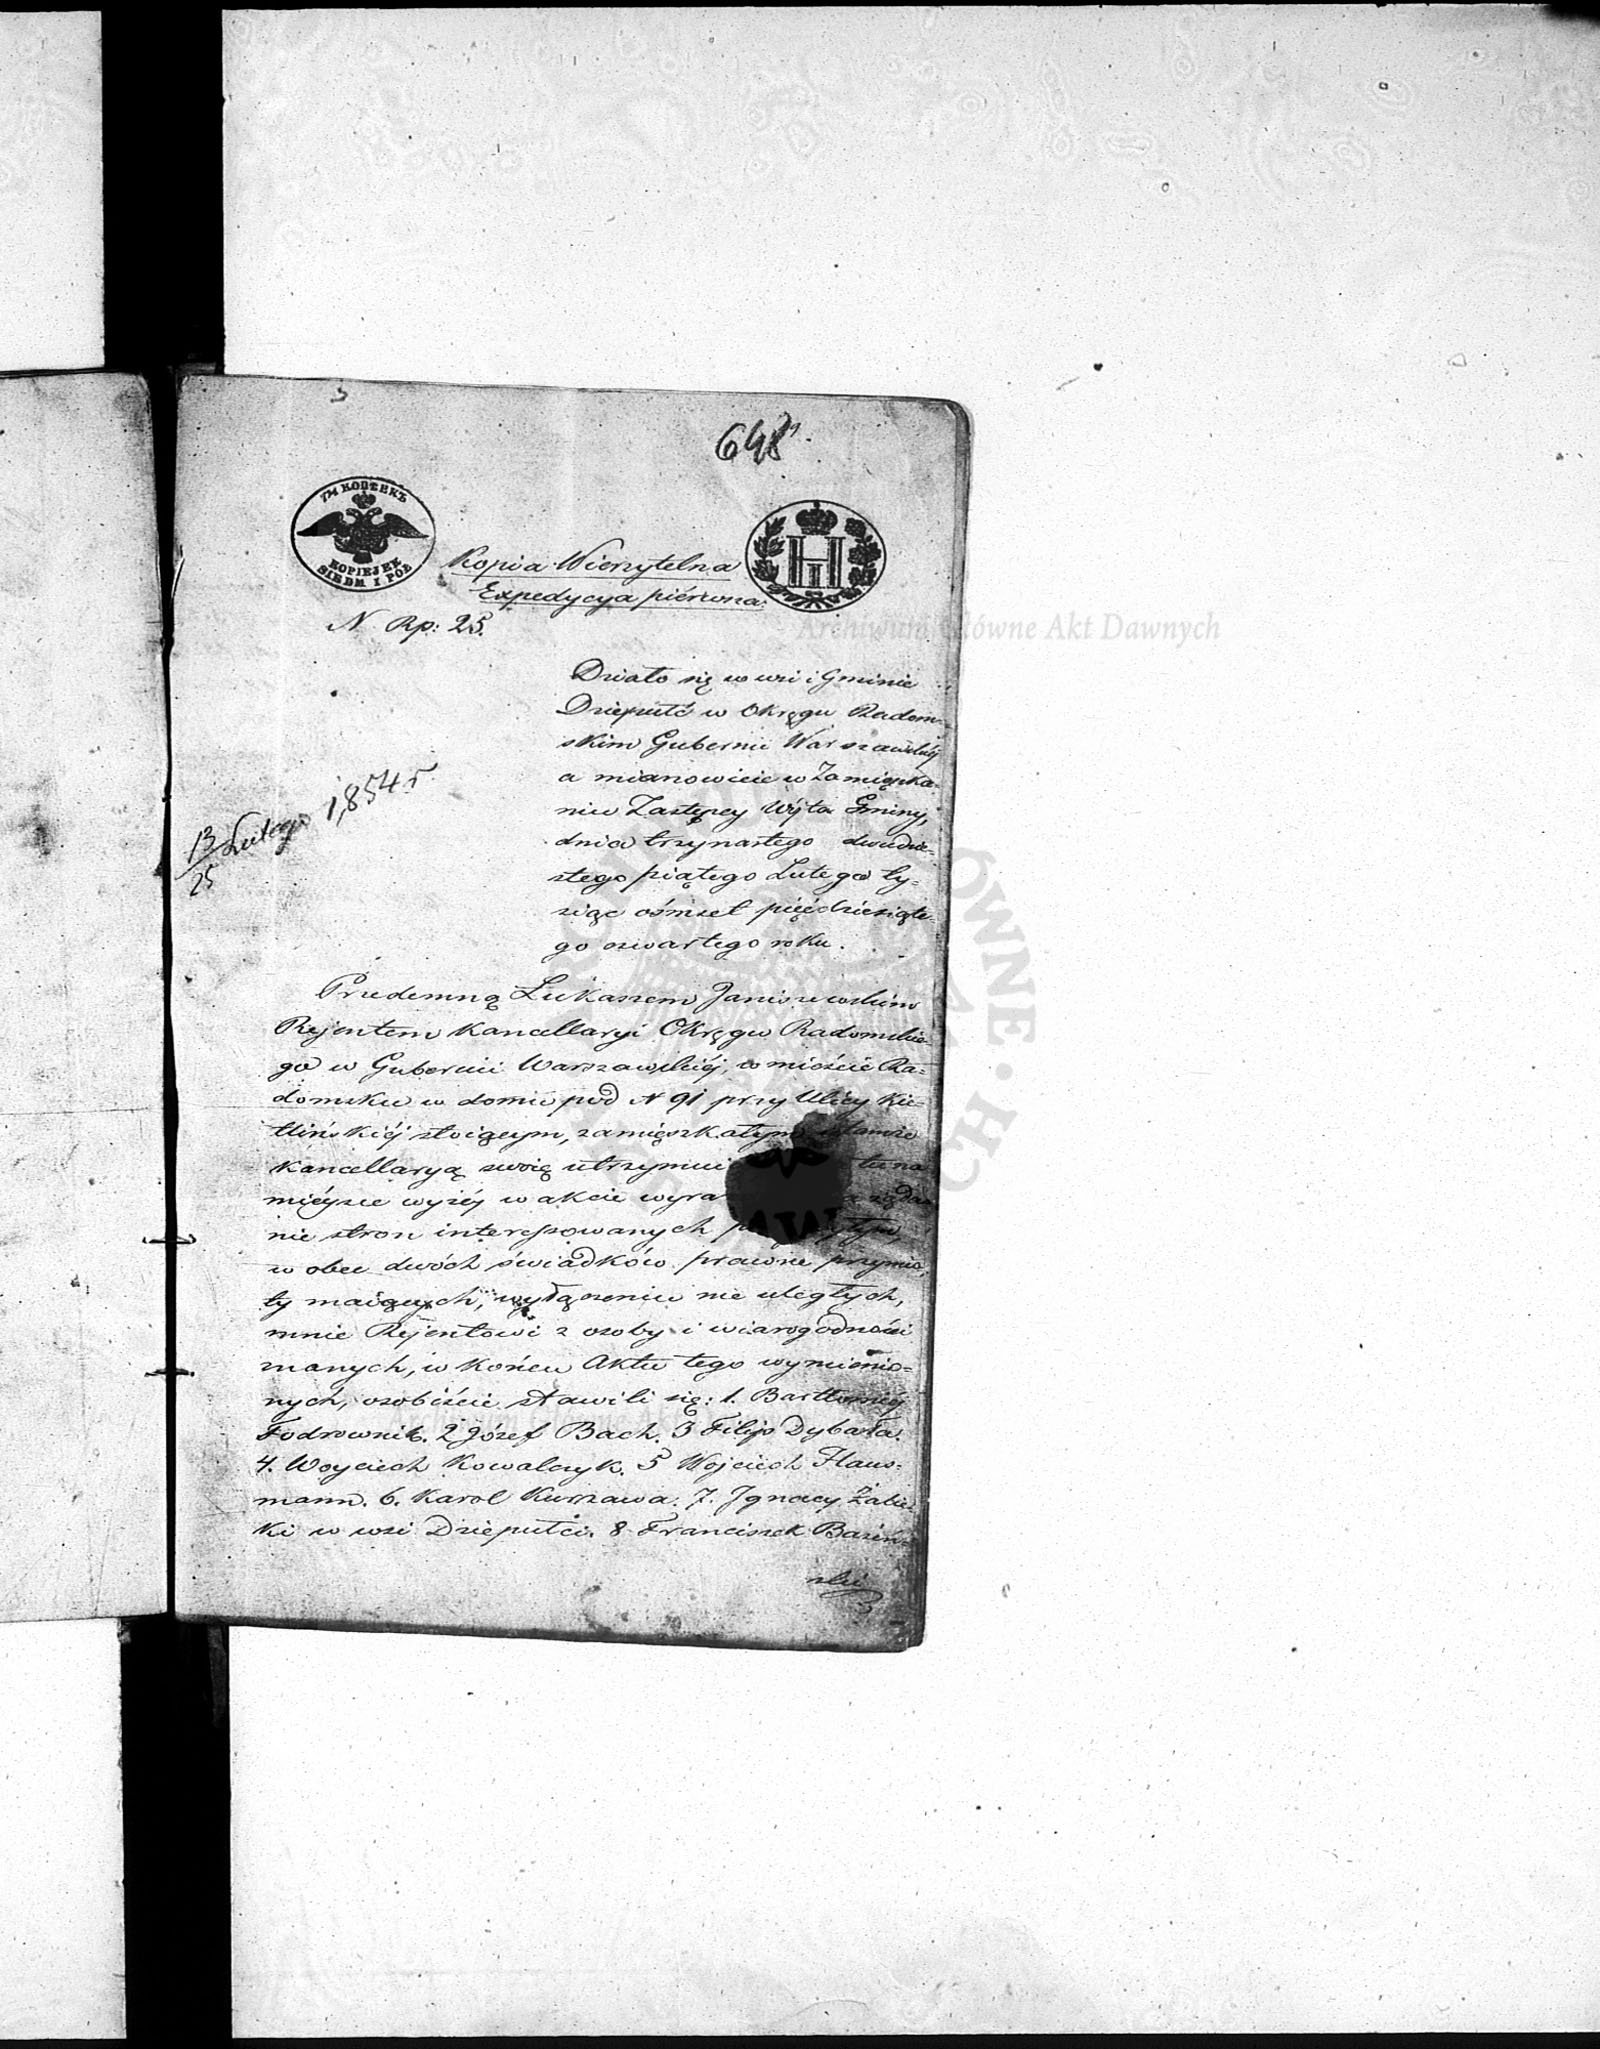 648
7½ КОПѢЕКЪ
KOPIEJEK
SIEDM I PÓŁ
Kopia Wierzytelna
Expedycya pierwsza.
N Rp: 25.
Działo się w wsi i Gminie
Dziepułć w Okręgu Radom-
skim Gubernii Warszawskiéj
a mianowicie w Zamięszka-
niu Zastępcy Wójta Gminy,
dnia trzynastego dwudzie-
stego piątego Lutego ty-
siąc ośmset pięćdziesiąte-
go czwartego roku.
13/25 Lutego 1854 r
Przedemną Łukaszem Janiszewskim
Rejentem Kancellaryi Okręgu Radomskie-
go w Gubernii Warszawskiéj, w mieście Ra-
domsku w domu pod N 91 przy Ulicy Kie-
tlińskiéj stoiącym, zamięszkałym, i tamże
Kancellaryą swoię utrzymui tu na
miéjsce wyżéj w akcie wyra a żąda-
nie stron interessowanych
w obec dwóch świadków prawne przymio-
ty maiących, wyłączeniu nie uległych,
mnie Rejentowi z osoby i wiarogodności
znanych, w końcu Aktu tego wymienio-
nych, osobiście stawili się: 1. Bartłomiéj
Fodrownik. 2 Józef Bach. 3 Filip Dybała.
4. Woyciech Kowalczyk. 5 Wojciech Haus-
mann. 6. Karol Kurzawa. 7. Ignacy Żabic-
ki w wsi Dziepułci. 8 Franciszek Baziń-
ski
Archiwum Główne Akt Dawnych